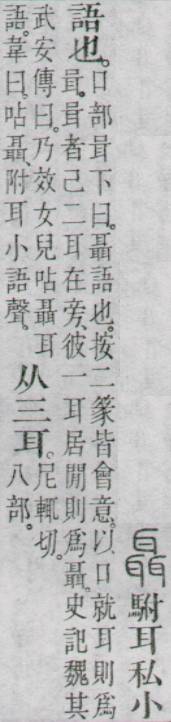 聶駙耳私小
語也。
口部咠下曰。聶語也。按二篆皆會意。以口就耳則爲
咠。咠者己二耳在旁、彼一耳居閒則爲聶。史記魏其
武安傳曰。乃效女兒呫聶耳
語。韋曰。呫聶附耳小語聲。
从三耳。
尼輒切。
八部。